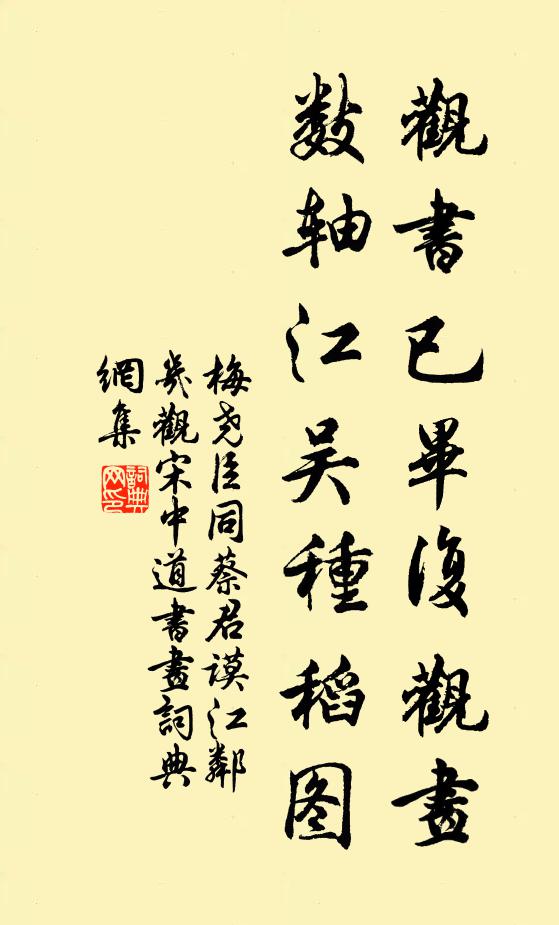 觀書已畢復觀畫
数轴江吴種稻图
梅尧臣同蔡君谟江鄰
幾觀宋中道書畫詞典
網集
詞典
网印